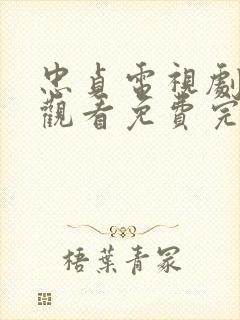 忠貞電視劇
觀看免費完
梧葉青冢